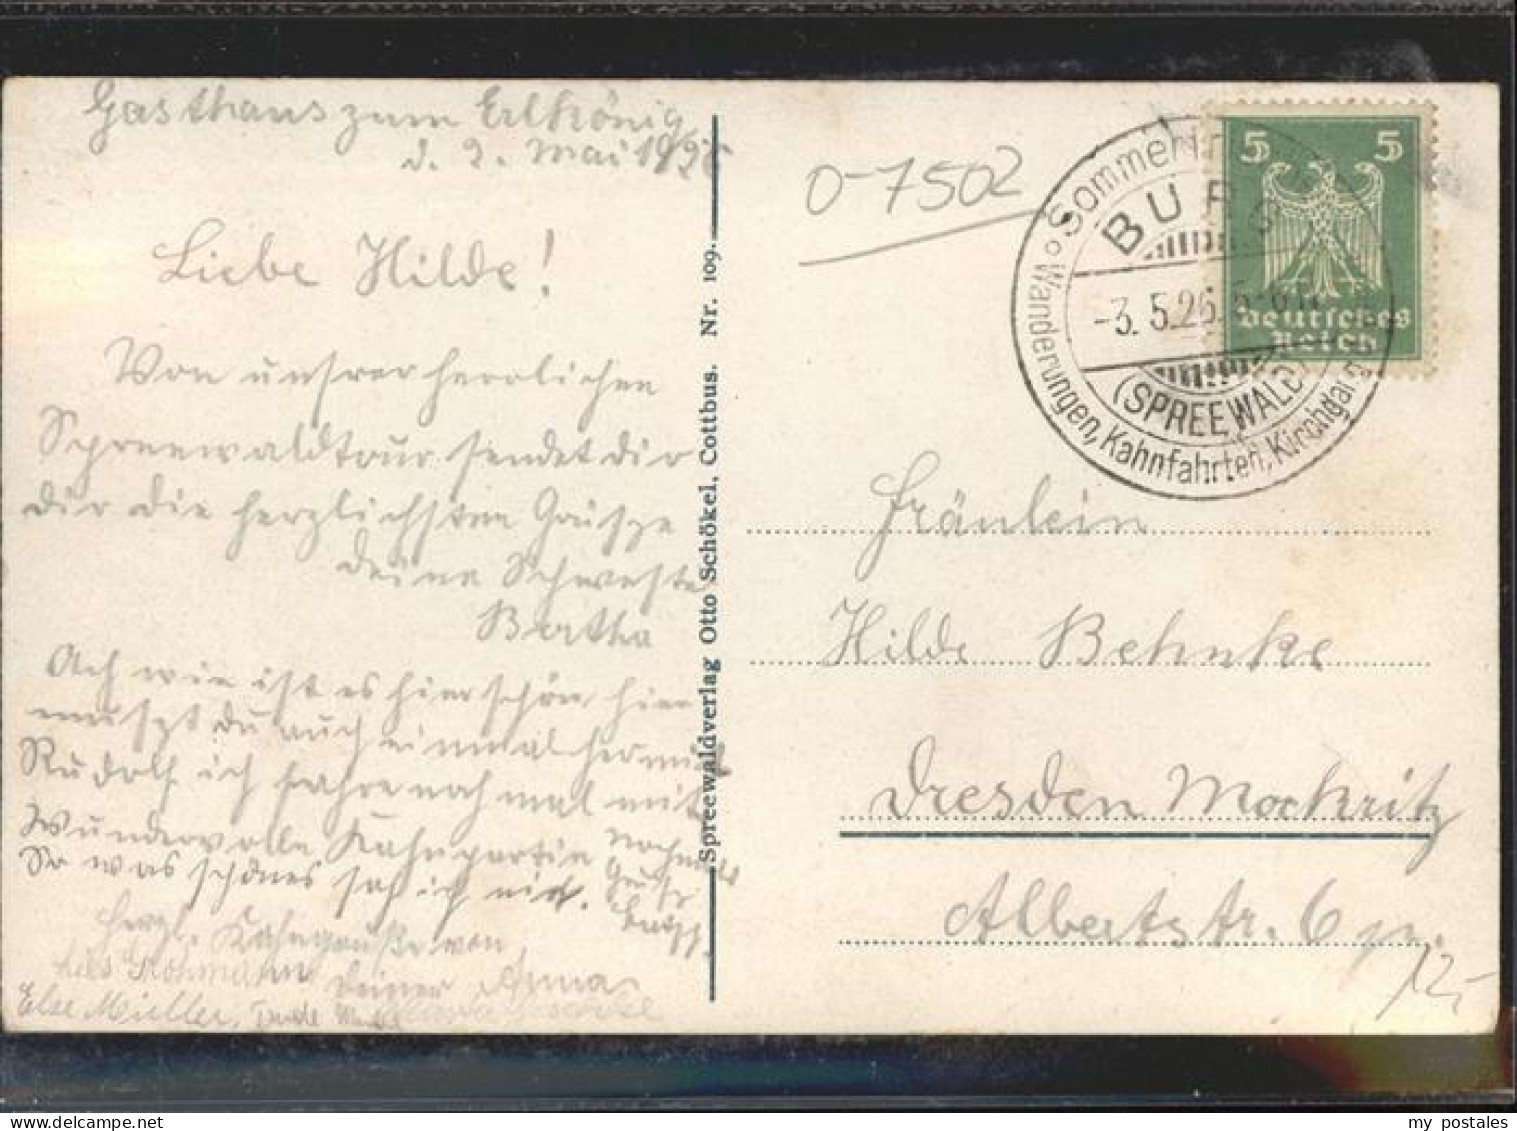 Gasthaus zum Erlkönig
d. 2. Mai 1926
Liebe Hilde!
Von unsrer herrlichen
Spreewaldtour sendet dir
dir die herzlichsten Grüsze
deine Schwester
Bertha
Ach wie ist es hier schön, hier
muszt du auch einmal her mit
Rudolf ich fahre noch mal mit
Wundervolle Kahnpartie
So was schönes sah ich nie.
nochmals
Grusz
Herzl. Kahngrüße von
Deiner Anna
Else Mieller,
Spreewaldverlag Otto Schökel, Cottbus. Nr. 109.
O-7502
BURG
-3.5.26
(SPREEWALD)
Wanderungen, Kahnfahrten, Kirchgang
5 5
Deutsches
Reich
Fräulein
Hilde Behnke
Dresden Mockritz
Albertstr. 6
12,-
my postales